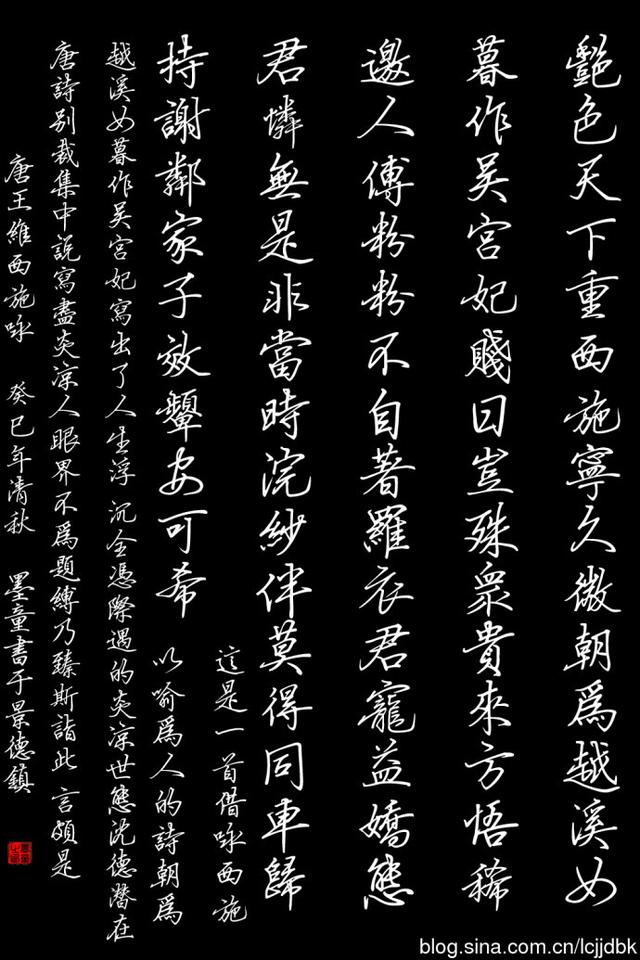 艷色天下重西施寧久微朝爲越溪女
暮作吴宮妃賤日豈殊衆貴來方悟稀
邀人傅粉粉不自著羅衣君寵益嬌態
君憐無是非當時浣紗伴莫得同車歸
持謝鄰家子效顰安可希
這是一首借咏西施
以喻爲人的詩朝爲
越溪女暮作吴宮妃寫出了人生浮沉全憑際遇的炎凉世態沈德潛在
唐詩别裁集中說寫盡炎凉人眼界不爲題縛乃臻斯詣此言頗是
唐王維西施咏 癸巳年清秋 墨童書于景德鎮
blog.sina.com.cn/lcjjdbk